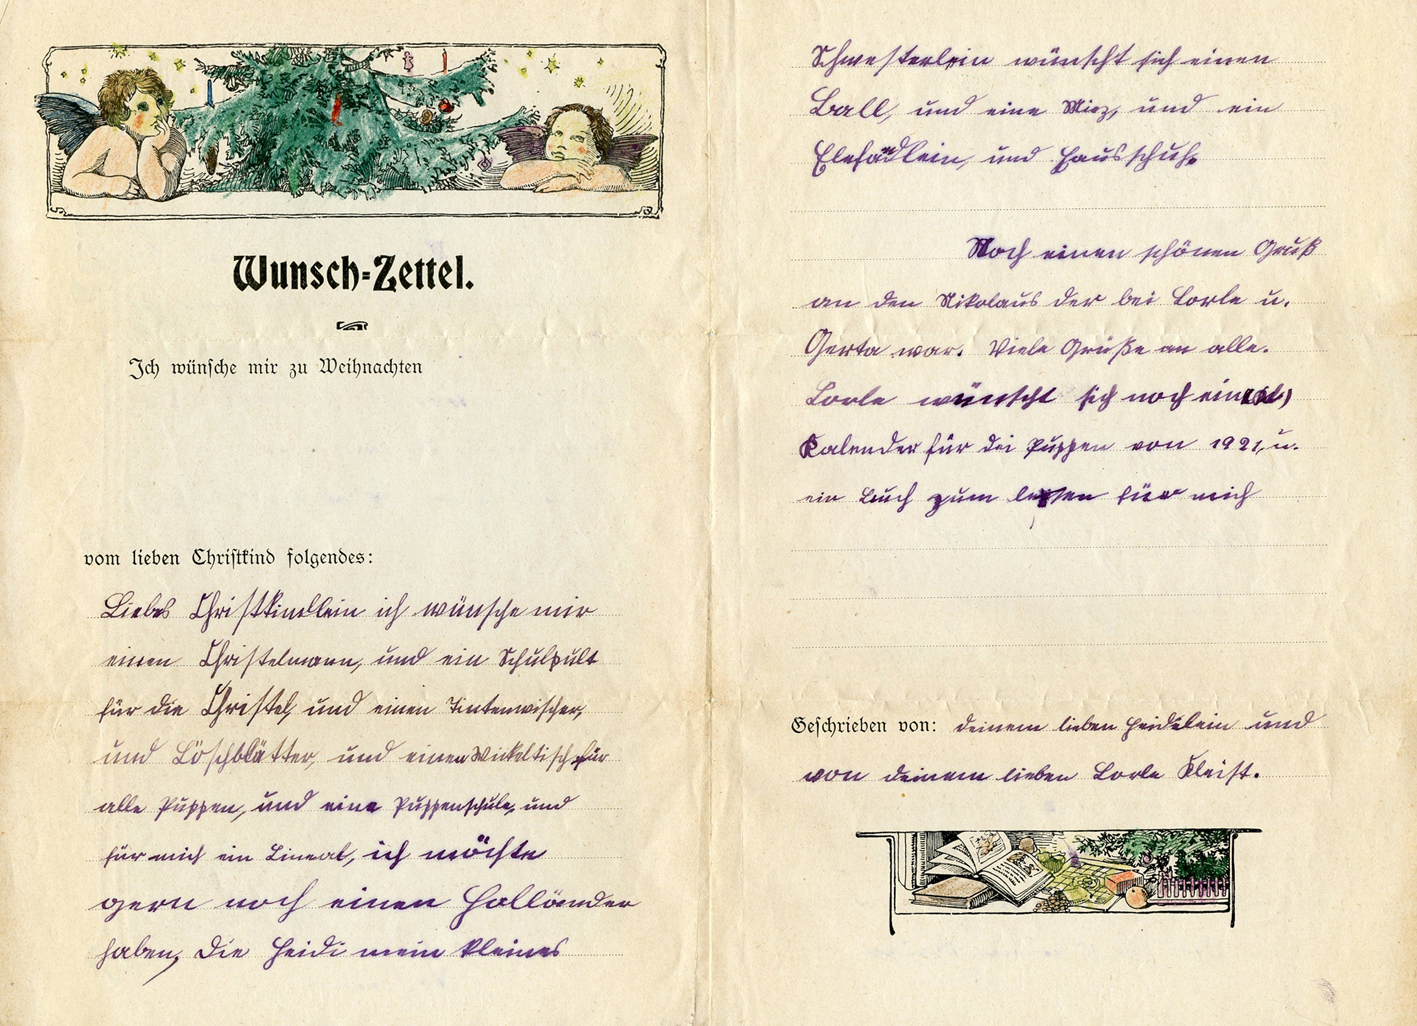 Wunsch-Zettel.
Ich wünsche mir zu Weihnachten
vom lieben Christkind folgendes:
Liebes Christkindlein ich wünsche mir
einen Christelmann, und ein Schulpult
für die Christel, und einen Tintenwischer,
und Löschblätter, und einen Wickeltisch für
alle Puppen, und eine Puppenschule, und
für mich ein Lineal, ich möchte
gern noch einen Holländer
haben, Die Heidi mein kleines
Schwesterlein wünscht sich einen
Ball, und eine Miez, und ein
Elefändlein, und Hausschuhe
Noch einen schönen Gruß
an den Nikolaus der bei Lorle u.
Gerta war. Viele Grüße an alle.
Lorle wünscht sich noch ein
Kalender für dei Puppen von 1921, u.
ein Buch zum lesen für mich
Geschrieben von: deinem lieben Heidilein und
von deinem lieben Lorle Kleist.